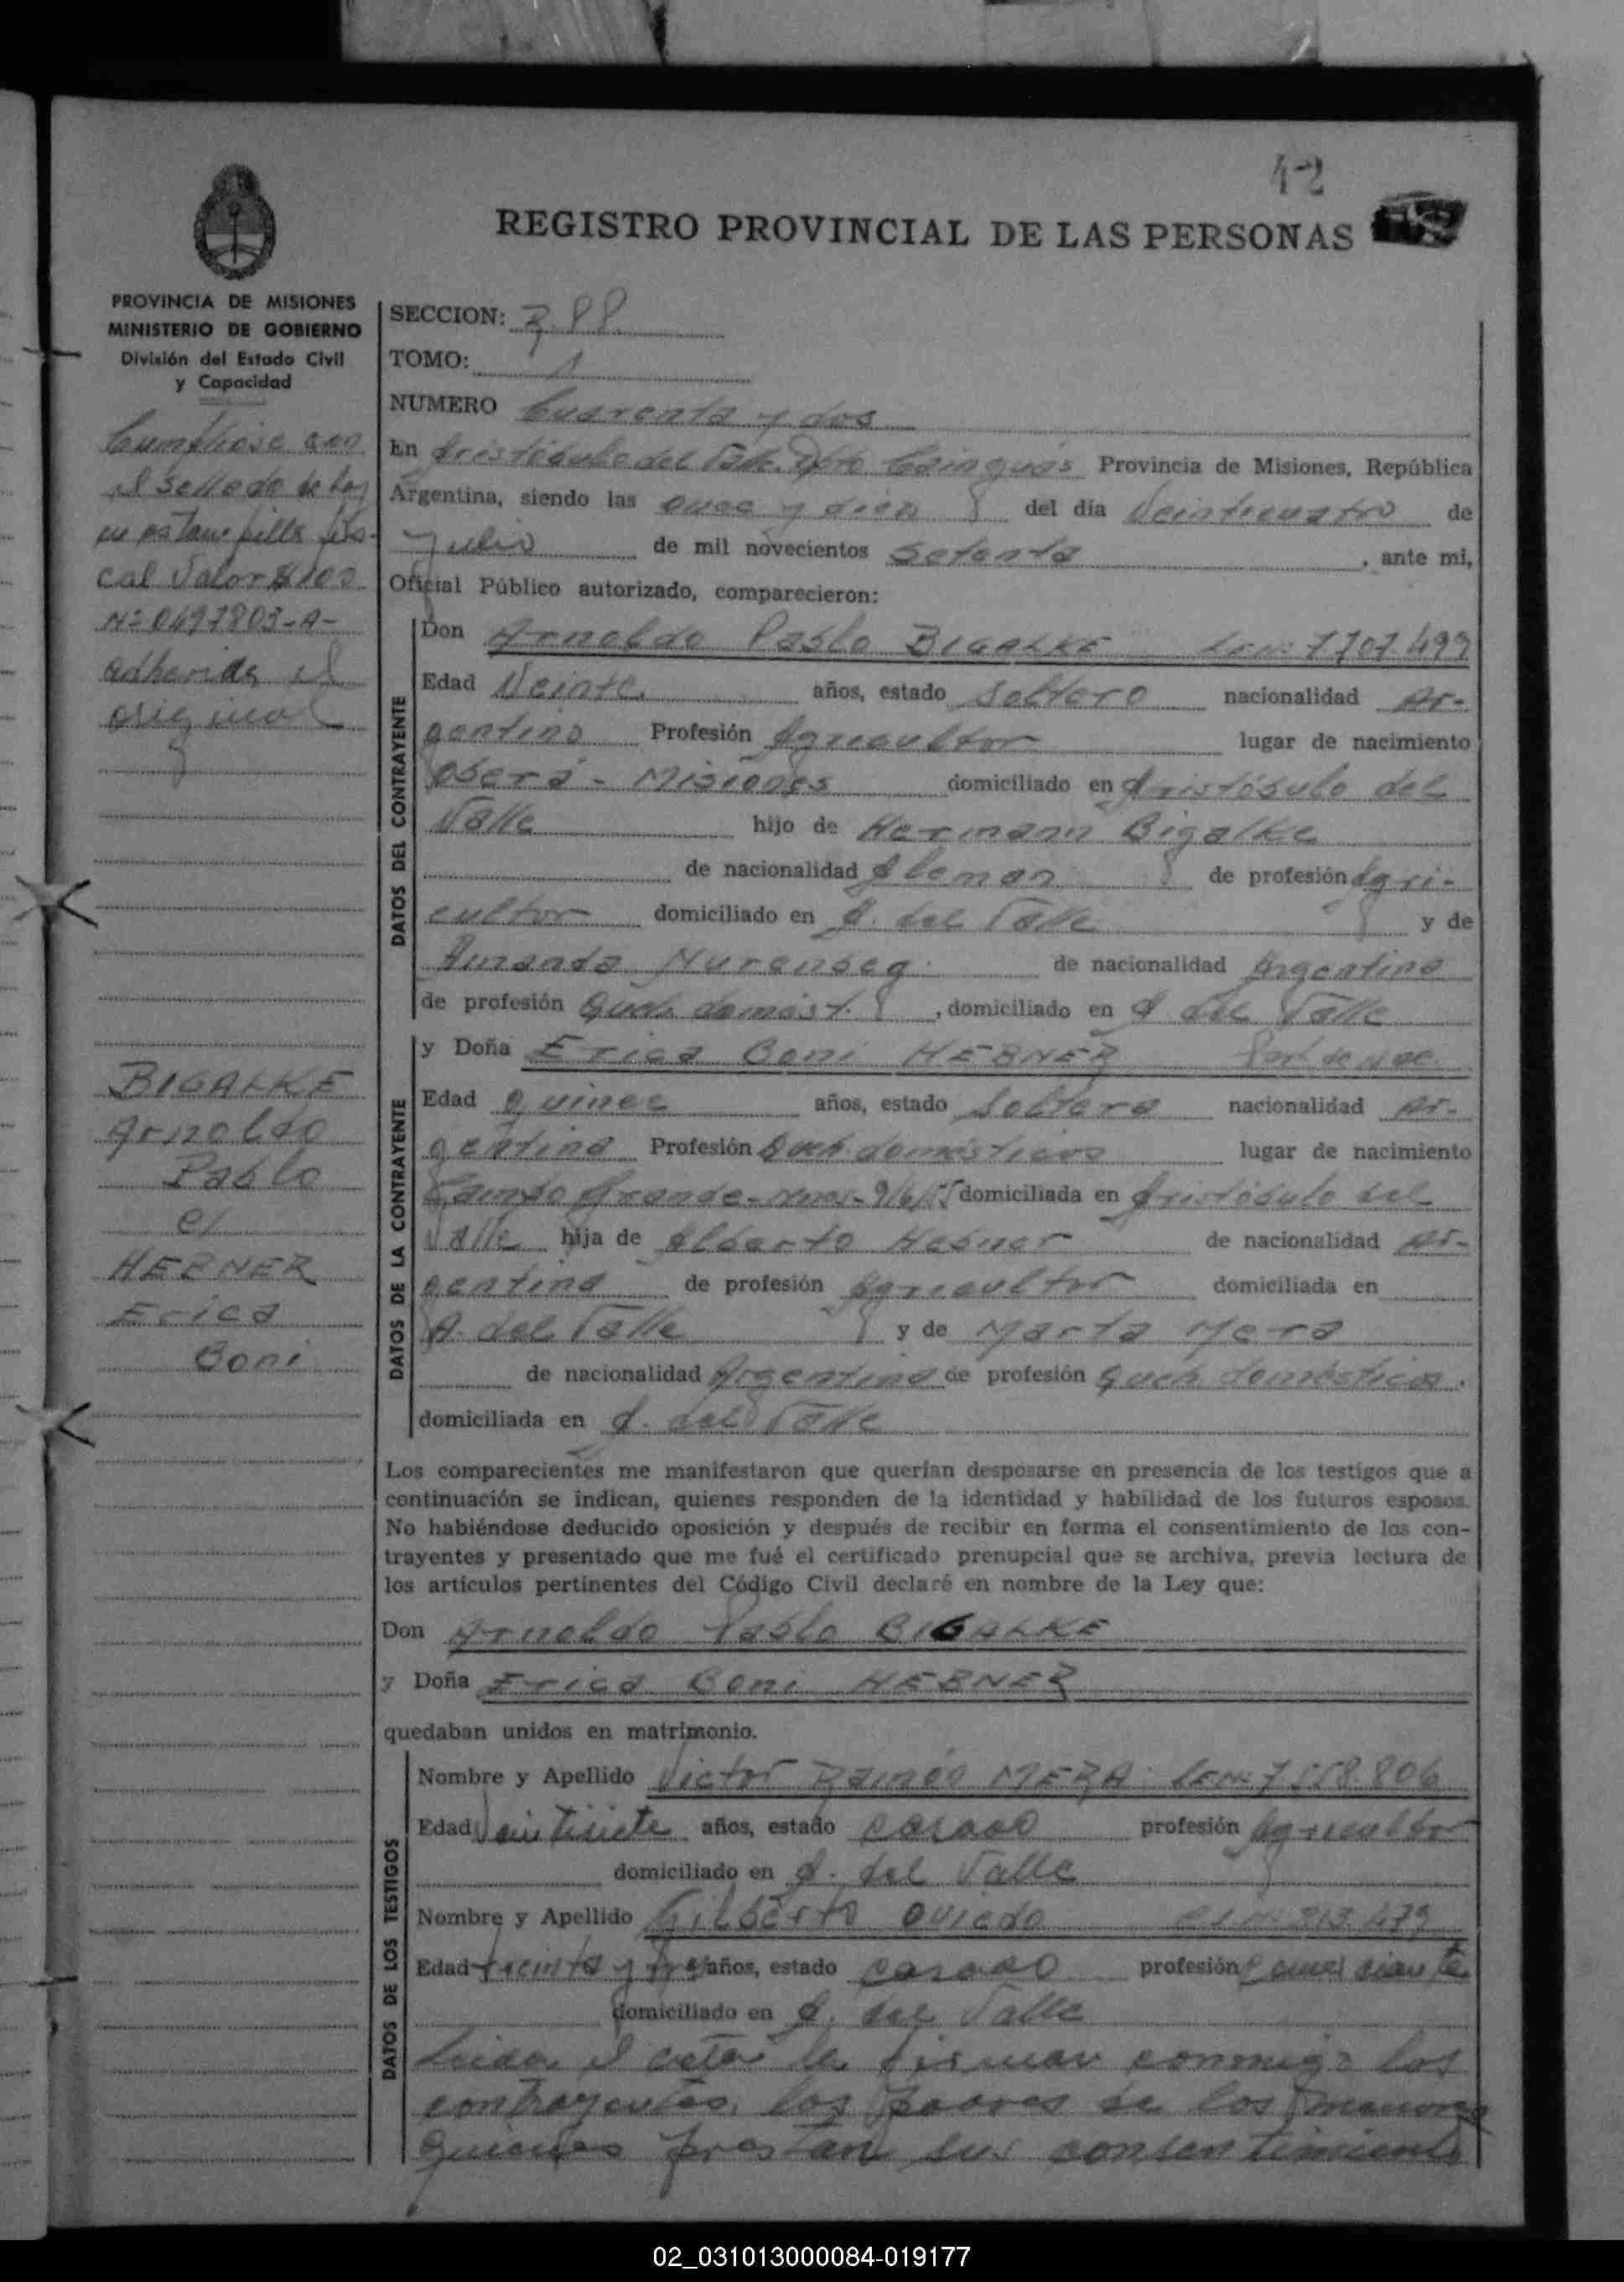 42
REGISTRO PROVINCIAL DE LAS PERSONAS
PROVINCIA DE MISIONES
MINISTERIO DE GOBIERNO
División del Estado Civil
y Capacidad
Cumpliose con
el sellado de ley
en estampilla fis-
cal Valor $ 100
Nº 0497803-A-
adherida el
original
BIGALKE
Arnoldo
Pablo
c/
HEBNER
Erica
Boni
SECCION:
TOMO: 1
NUMERO Cuarenta y dos
En Aristóbulo del Valle, Dpto Cainguás Provincia de Misiones, República
Argentina, siendo las once y diez del día Veinticuatro de
Julio de mil novecientos Setenta, ante mi,
Oficial Público autorizado, comparecieron:
DATOS DEL CONTRAYENTE
Don Arnoldo Pablo BIGALKE L.E.Nº 7.707.499
Edad Veinte años, estado Soltero nacionalidad Ar-
gentino Profesión Agricultor lugar de nacimiento
Oberá - Misiones domiciliado en Aristóbulo del
Valle hijo de Hermann Bigalke
de nacionalidad Aleman de profesión Agri-
cultor domiciliado en A. del Valle y de
Amanda de nacionalidad Argentina
de profesión Queh. domést., domiciliado en A. del Valle
DATOS DE LA CONTRAYENTE
y Doña Erica Boni HEBNER Part. de Nac.
Edad Quince años, estado Soltera nacionalidad Ar-
gentina Profesión Queh. domésticos lugar de nacimiento
Campo Grande - Mnes - 9/6/55 domiciliada en Aristóbulo del
Valle hija de Alberto Hebner de nacionalidad Ar-
gentino de profesión Agricultor domiciliada en
A. del Valle y de Marta Mera
de nacionalidad Argentina de profesión Queh. domésticos.
domiciliada en A. del Valle
Los comparecientes me manifestaron que querían desposarse en presencia de los testigos que a
continuación se indican, quienes responden de la identidad y habilidad de los futuros esposos.
No habiéndose deducido oposición y después de recibir en forma el consentimiento de los con-
trayentes y presentado que me fué el certificado prenupcial que se archiva, previa lectura de
los artículos pertinentes del Código Civil declaré en nombre de la Ley que:
Don Arnoldo Pablo BIGALKE
y Doña Erica Boni HEBNER
quedaban unidos en matrimonio.
DATOS DE LOS TESTIGOS
Nombre y Apellido Victor Ramón MERA L.E.Nº 7.558.806
Edad Veintisiete años, estado casado profesión Agricultor
domiciliado en A. del Valle
Nombre y Apellido Gilberto Oviedo C.I.Nº 213.479
Edad treinta y tres años, estado casado profesión Comerciante
domiciliado en A. del Valle
Leida el acta la firman conmigo los
contrayentes, los padres de los menores
quienes prestan sus consentimiento
02_031013000084-019177